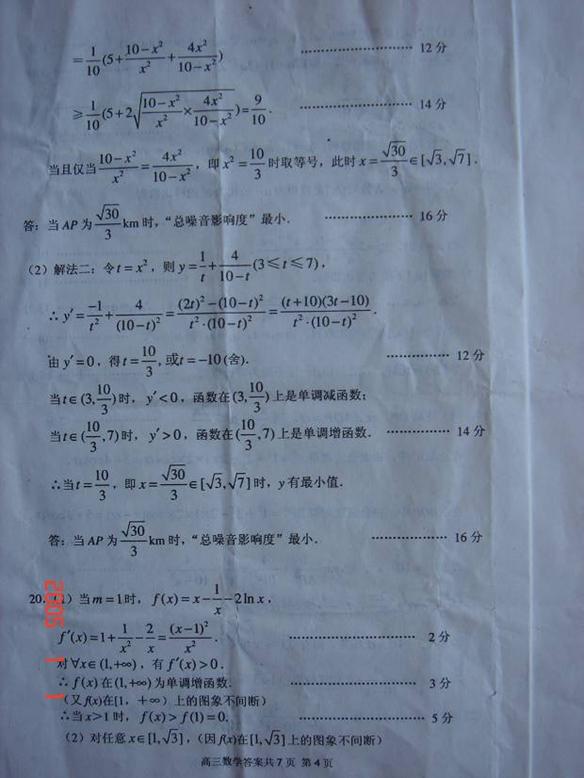 =1/10(5+(10−x²)/x²+4x²/(10−x²)) ……………… 12 分
≥1/10(5+2√((10−x²)/x²×4x²/(10−x²)))=9/10. ……………… 14 分
当且仅当(10−x²)/x²=4x²/(10−x²)，即x²=10/3时取等号，此时x=√30/3∈[√3,√7].
答：当AP为√30/3km时，“总噪音影响度”最小. ……………… 16 分
(2) 解法二：令t=x²，则y=1/t+4/(10−t)(3≤t≤7)，
∴y′=−1/t²+4/(10−t)²=((2t)²−(10−t)²)/(t²·(10−t)²)=((t+10)(3t−10))/(t²·(10−t)²).
由y′=0，得t=10/3，或t=−10(舍). ……………… 12 分
当t∈(3,10/3)时，y′<0，函数在(3,10/3)上是单调减函数；
当t∈(10/3,7)时，y′>0，函数在(10/3,7)上是单调增函数. ……………… 14 分
∴当t=10/3，即x=√30/3∈[√3,√7]时，y有最小值.
答：当AP为√30/3km时，“总噪音影响度”最小. ……………… 16 分
20.(1) 当m=1时，f(x)=x−1/x−2ln x，
f′(x)=1+1/x²−2/x=(x−1)²/x². ……………… 2 分
对∀x∈(1,+∞)，有f′(x)>0.
∴f(x)在(1,+∞)为单调增函数. ……………… 3 分
(又f(x)在[1，+∞）上的图象不间断)
∴当x>1时，f(x)>f(1)=0. ……………… 5 分
(2) 对任意x∈[1,√3]，(因f(x)在[1,√3]上的图象不间断)
高三数学答案共 7 页 第 4 页